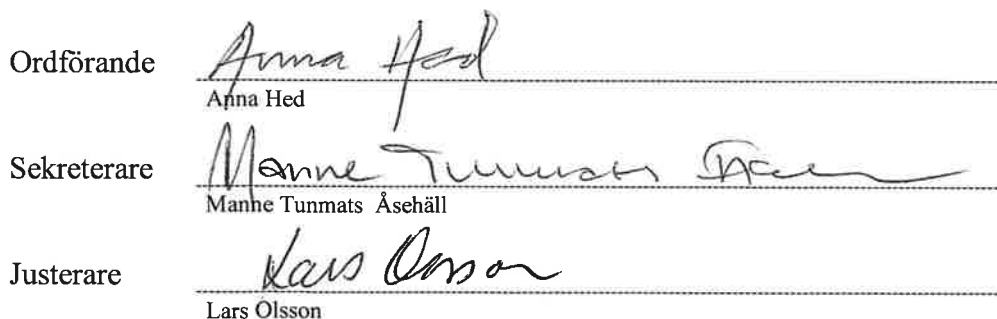 Ordförande Anna Hed
Anna Hed
Sekreterare Manne Tunmats
Manne Tunmats Åsehäll
Justerare Lars Olsson
Lars Olsson